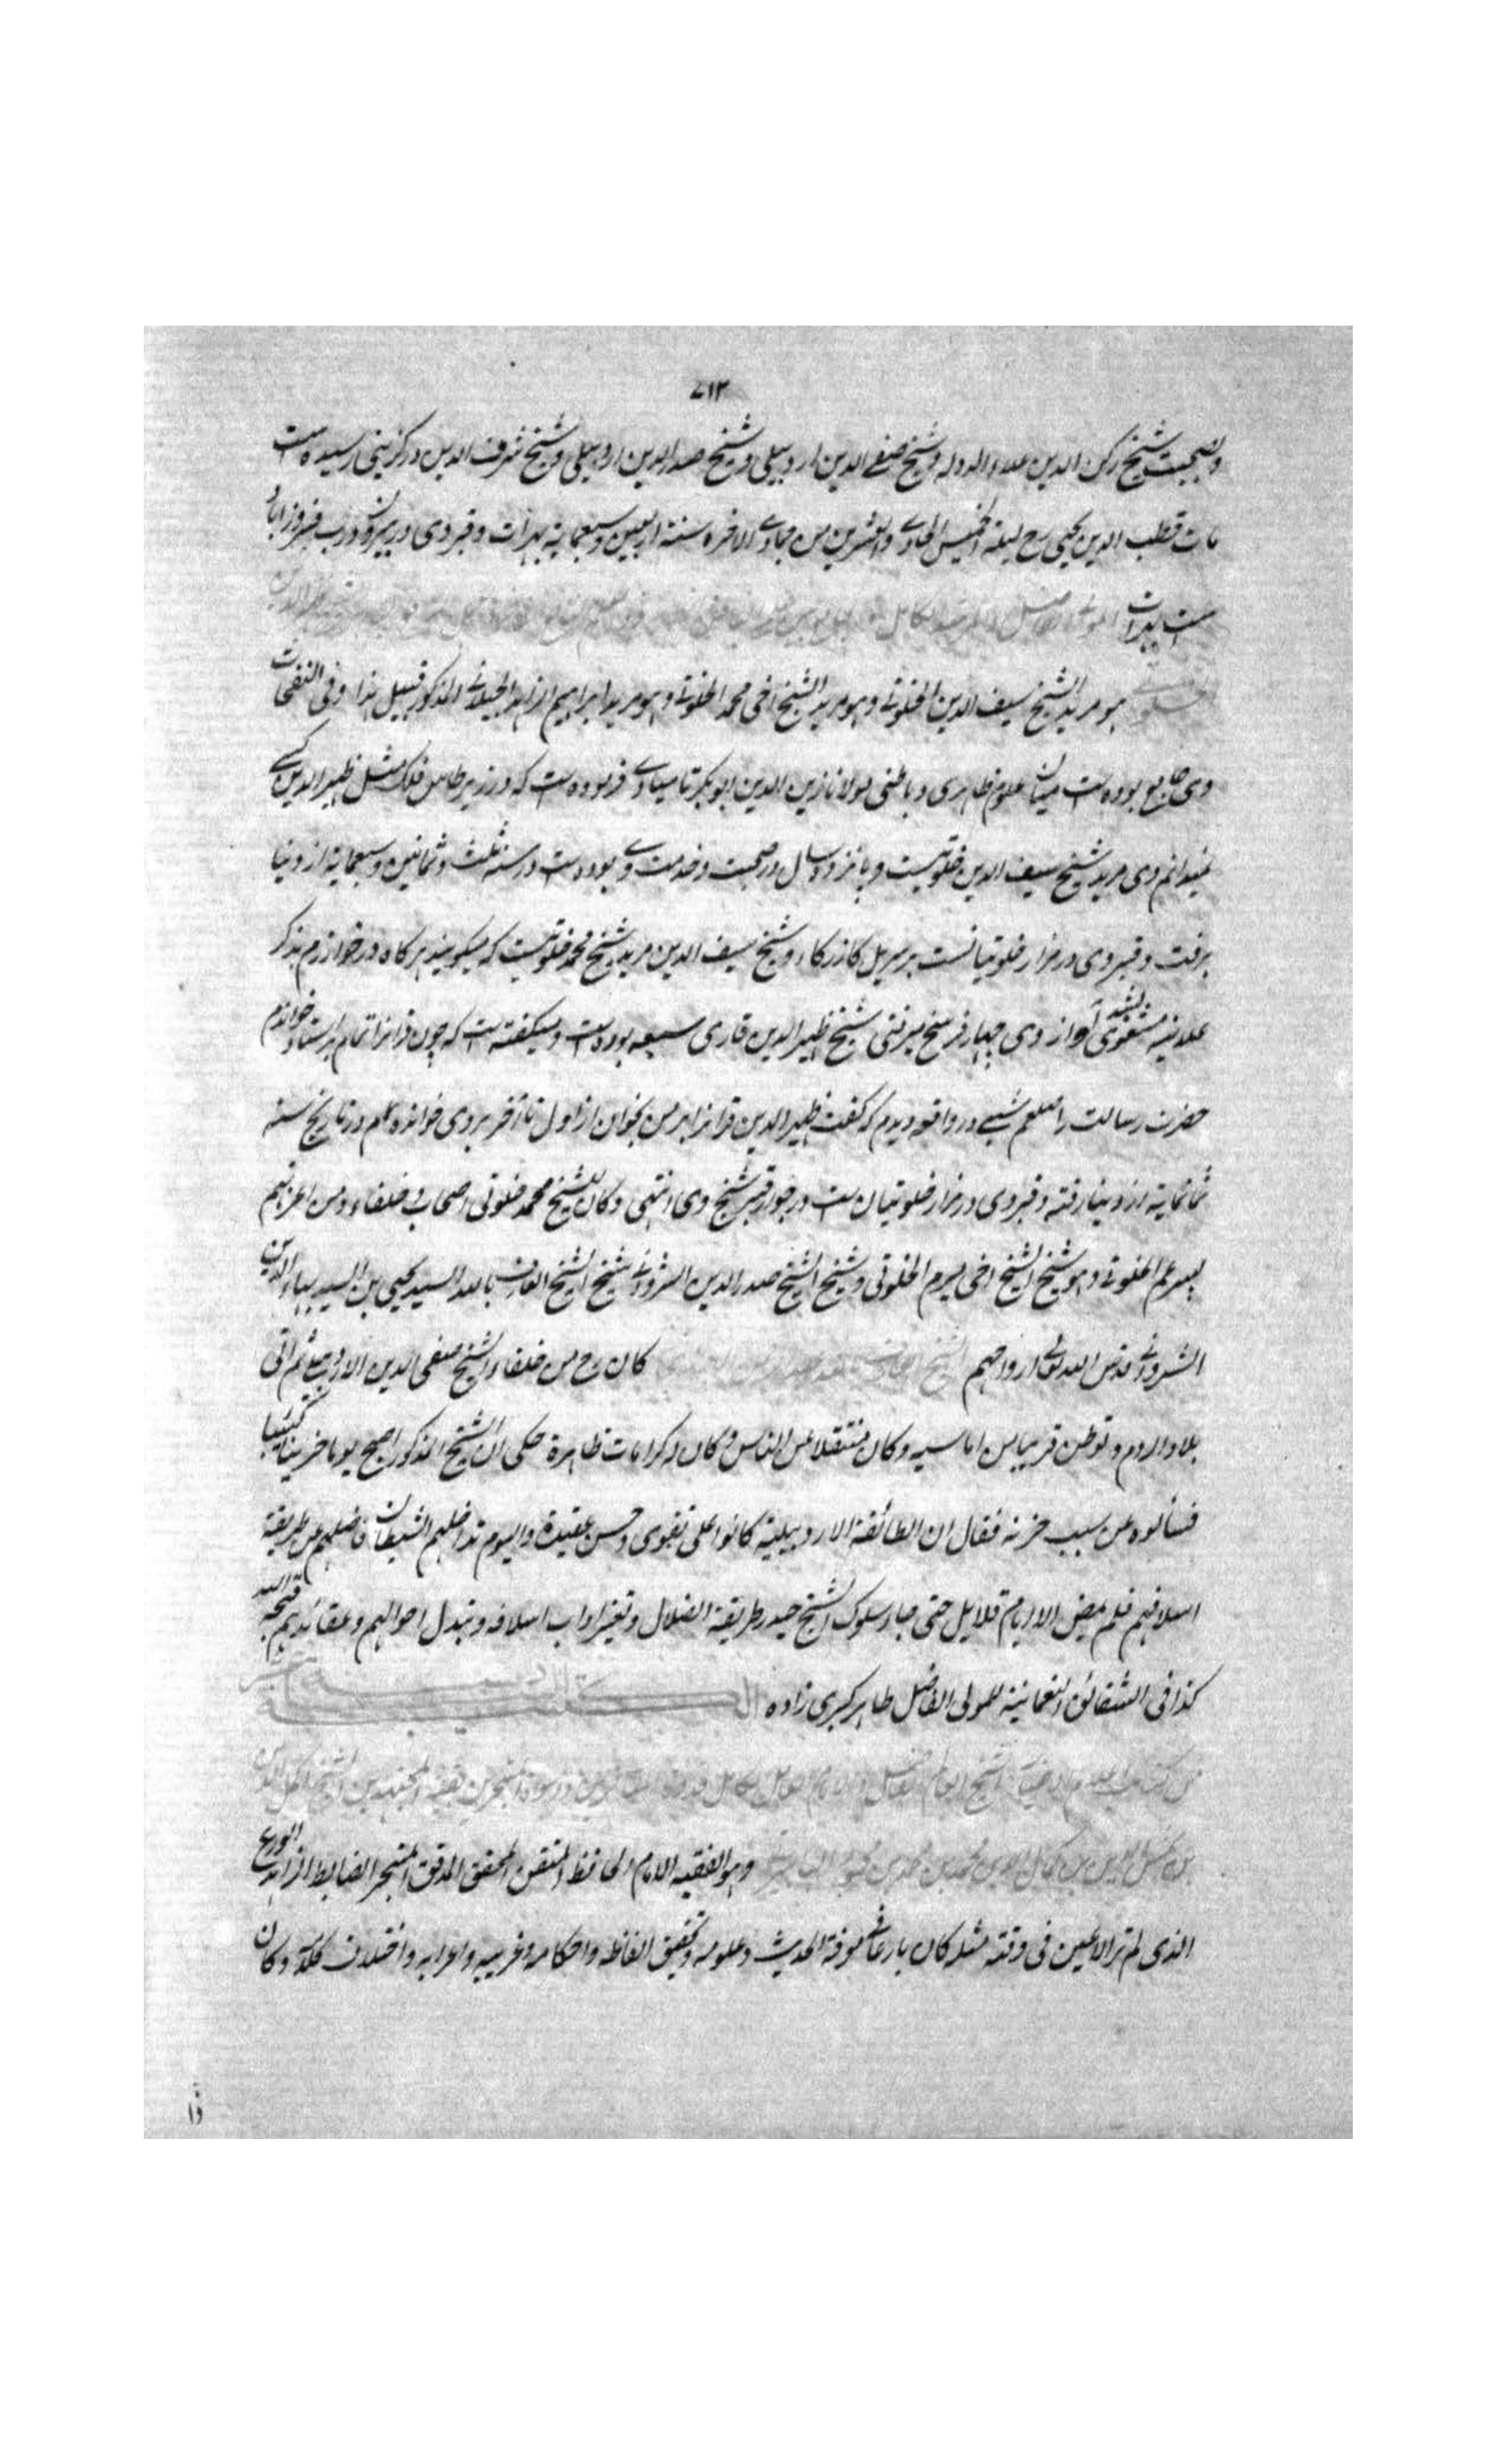 ٧١٣
وبصحبت شیخ رکن الدین علاء الدوله وشیخ صفی الدین اردبیلی وشیخ صدر الدین اردبیلی وشیخ شرف الدین درکزینی رسیده است
مات قطب الدین یحیی رح لیلة الخمیس الحادی والعشرین من جمادی الاخره سنة اربعین وسبعمایة بهرات وقبر وی در بیرون درب فیروزاباد
است بهرات
هو مرید الشیخ سیف الدین الخلوتی وهو مرید الشیخ اخی محمد الخلوتی وهو مرید ابراهیم الزاهد الجیلانی المذکور قبیل هذا وفی النفحات
وی جامع بوده است میان علوم ظاهری وباطنی مولانا زین الدین ابوبکر تایبادی فرموده است که در زیر طاس فلک مثل ظهیر الدین کسی
نمیدانم وی مرید شیخ سیف الدین خلوتیست وپانزده سال در صحبت وخدمت وی بوده است در سنه ثلث وثمانین وسبعمایة از دنیا
برفت وقبر وی در مزار خلوتیانست بر سر پل کازرکاه وشیخ سیف الدین مرید شیخ محمد خلوتیست که میگویند هرگاه در خوارزم بذکر
علانیه مشغول شدی آواز وی چهار فرسخ میرفتی شیخ ظهیر الدین قاری سبعه بوده است ومیگفته است که چون قرانرا تمام بر استاد خواندم
حضرت رسالت را صلعم شبی در واقعه دیدم که گفت ظهیر الدین قرانرا بر من بخوان از اول تا آخر بر وی خوانده ام در تاریخ سنه
ثمانمایة از دنیا رفته وقبر وی در مزار خلوتیان است در جوار قبر شیخ وی انتهی وکان للشیخ محمد خلوتی اصحاب وخلفاء ومن اعزهم
پیر عمر الخلوتی وهو شیخ الشیخ اخی میرم الخلوتی وشیخ الشیخ صدر الدین الشروانی شیخ الشیخ العارف بالله السید یحیی بن السید بهاء الدین
الشروانی قدس الله تعالی ارواحهم الشیخ کان رح من خلفاء الشیخ صفی الدین الاردبیلی ثم اتی
بلاد الروم وتوطن قریبا من اماسیه وکان منتقلا عن الناس وکان له کرامات ظاهرة حکی ان الشیخ المذکور اصبح یوما حزینا کئیبا
فسألوه عن سبب حزنه فقال ان الطائفة الاردبیلیة کانوا علی تقوی وحسن عقیدة والیوم تداخلهم الشیطان فاضلهم عن طریقة
اسلافهم فلم یمض الا ایام قلایل حتی جاء سلوک الشیخ حیدر طریقة الضلال وتغیر اداب اسلافه وتبدل احوالهم وعقائدهم قبحه الله
کذا فی الشقائق النعمانیة للمولی الفاضل طاشکبری زاده الکتیبة
الشیخ اکمل الدین
بن شمس الدین بن کمال الدین محمد بن محمد بن محمود البابرتی وهو الفقیه الامام الحافظ المتقن المحقق المدقق المتبحر الضابط الزاهد الورع
الذی لم تر الاعین فی وقته مثله کان بارعا فی معرفة الحدیث وعلومه وتحقیق الفاظه واحکامه وغریبه واعرابه واختلاف کله وکان